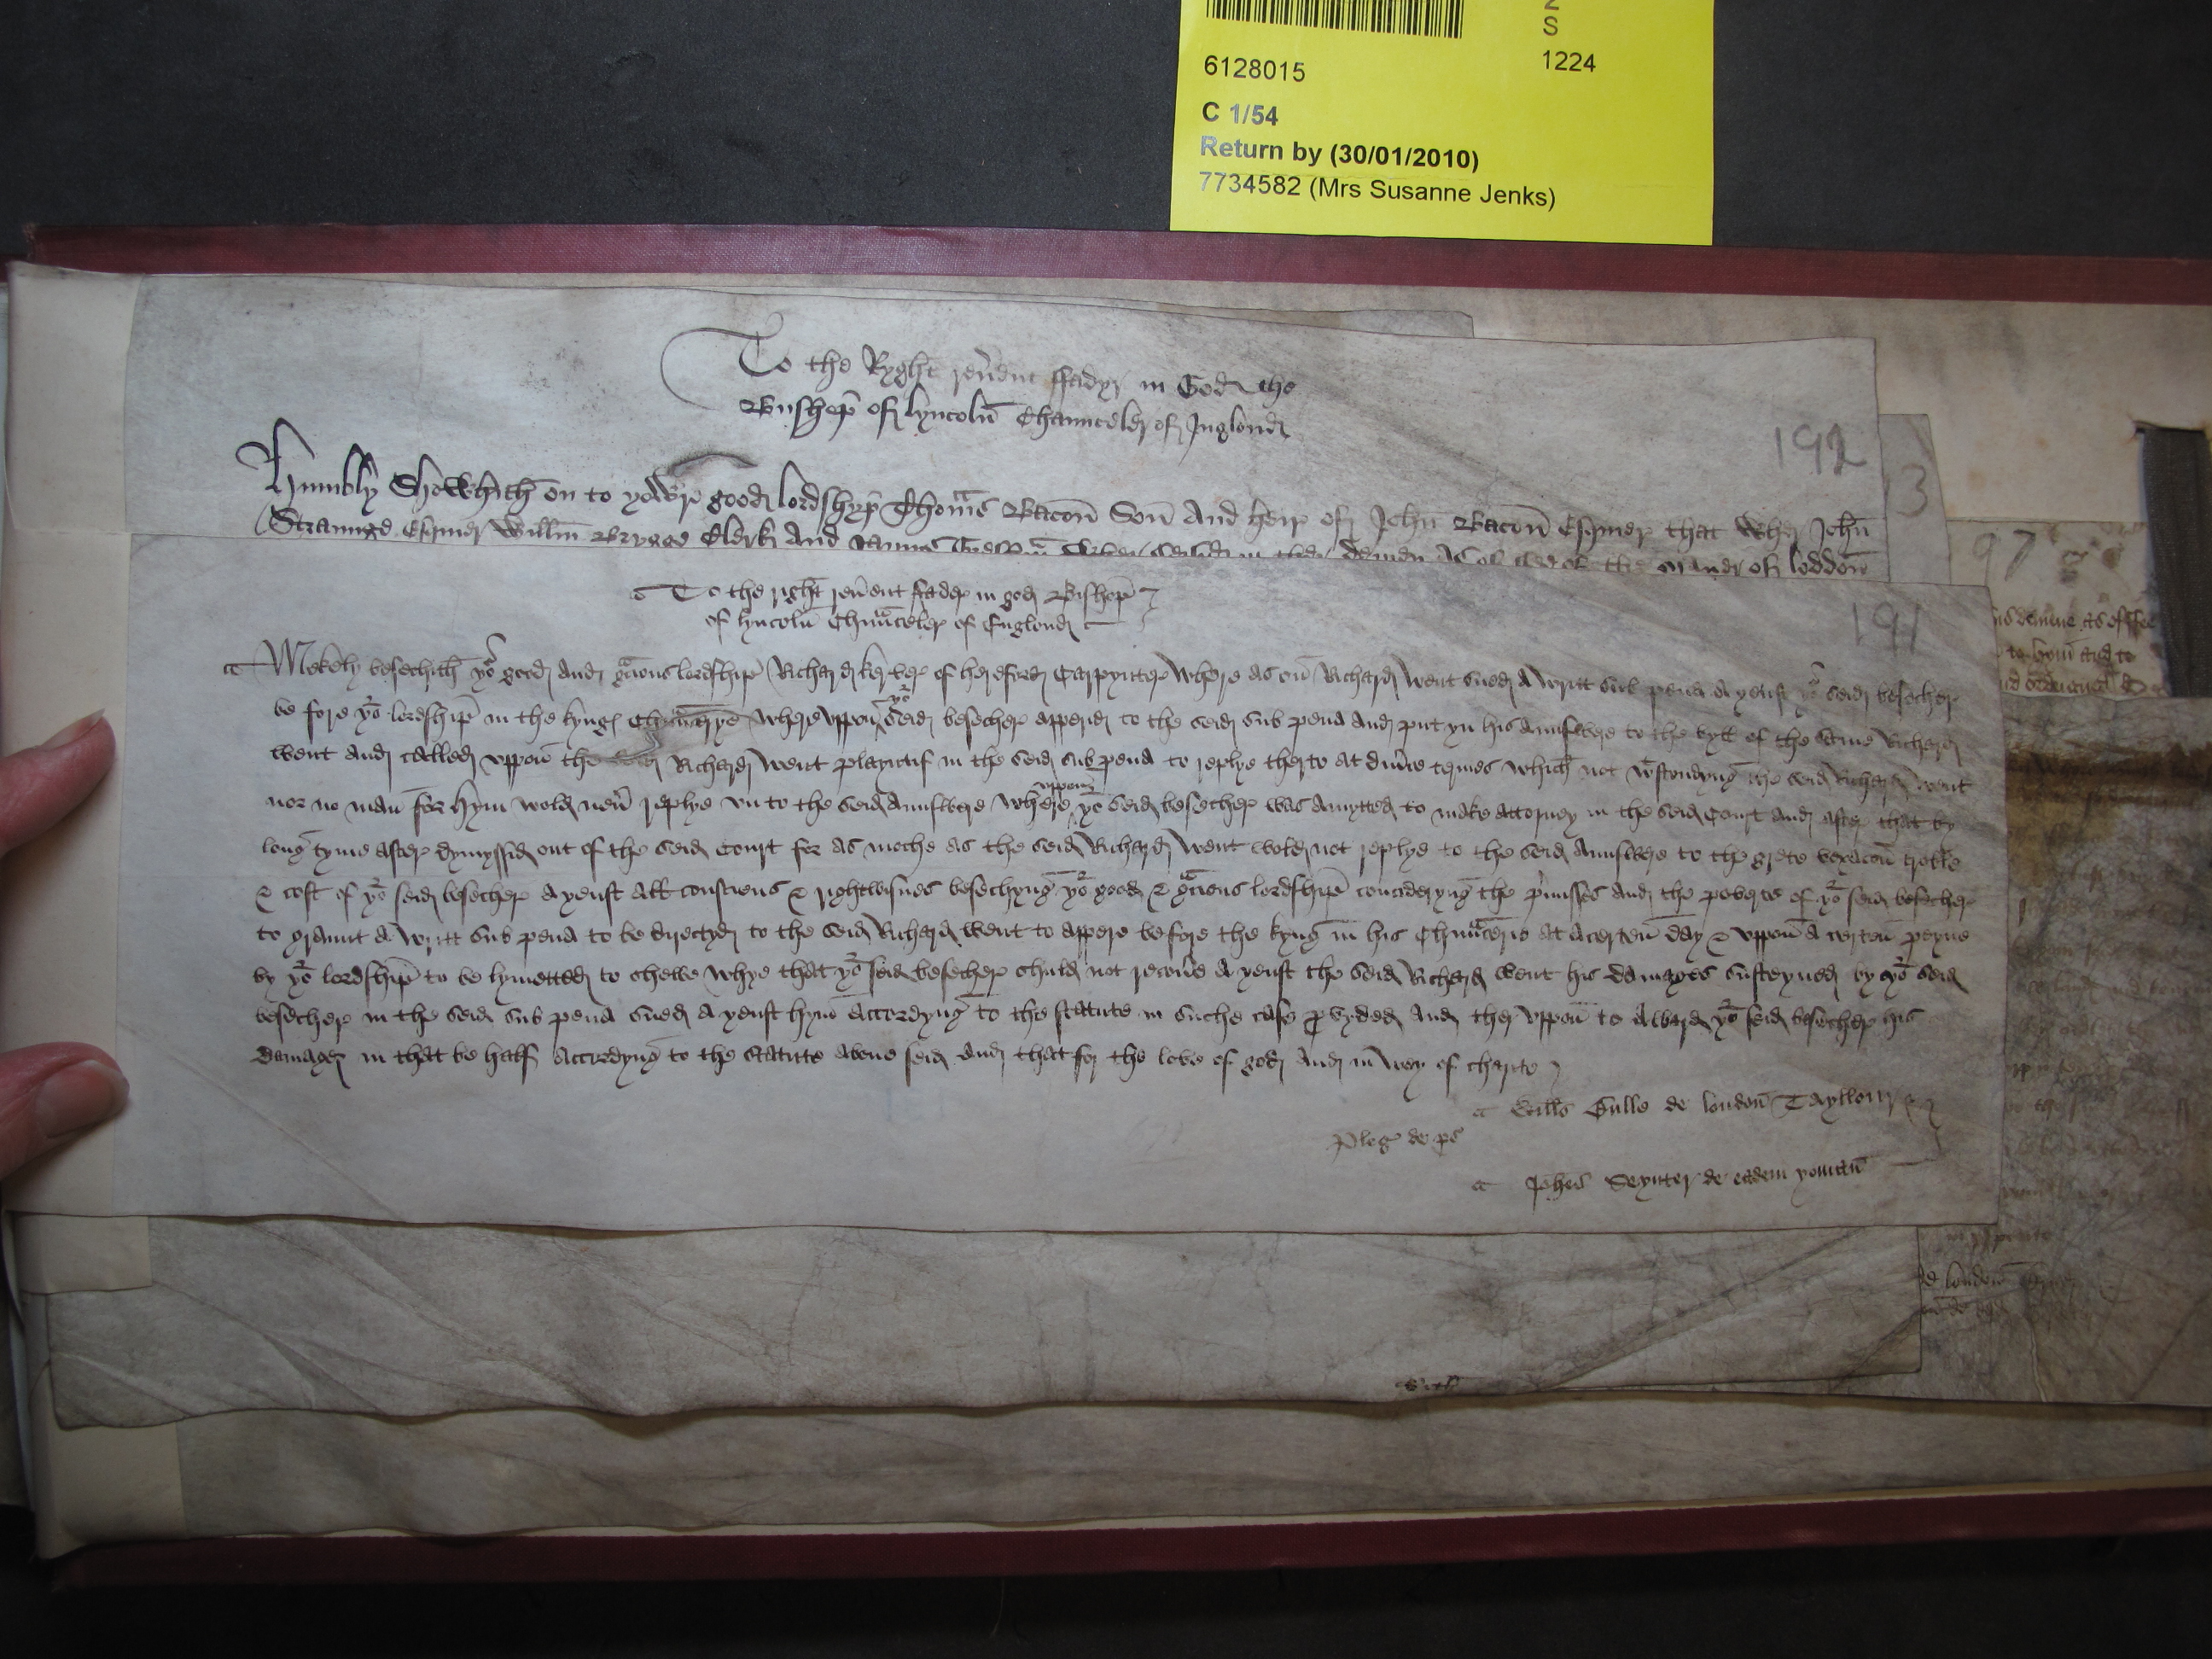 2
S
6128015
1224
C 1/54
Return by (30/01/2010)
7734582 (Mrs Susanne Jenks)
To the Ryght reu'ent ffadyr in God the
Busshep of lyncoln Chaunceler of Inglond
192
3
Humbly Shewhith on to yowre good lordshyp Thom̃s Bacon Son And heir of John Bacon Esquier that wher John
Straunge Esquier Willm Clerk And
of loddon
97
To the right reu'ent fader in god Bisshep
of lyncoln Chaũceler of Englond
191
Mekely besechith yo^r good and gᵃcious lordship Richard kerver of hereford Carpynter where as on Richard Went sued A writt sub pena A yenst yo^r seid besecher
be fore yo^r lordship in the kyngs Chaũcrye where vppon yo^r seid besecher apperid to the seid sub pena and put yn his Aunswere to the byll of the same Richard
Went and called vppon the Richard Went playntif in the seid sub pena to replye therto at dyu'se termes which not wtstondyng the seid Richard Went
nor no man for hym wold neu' replye vn to the seid Aunswere where vppon yo^r seid besecher was Amytted to make attorney in the seid Court and after that by
long tyme after dymyssid out of the seid Court for as moche as the seid Richard Went wold not replye to the seid Aunswere to the grete vexacon troble
& cost of yo^r seid besecher A yenst All consciens & rightwisnes besechyng yo^r good & gᵃcious lordship concideryng the p'misses and the poverte of yo^r seid besecher
to graunt A writt sub pena to be directyd to the seid Richard Went to Appere be fore the kyng in his Chaũcerie At A certen day & vppon A certen peyne
by yo^r lordship to be lymetted to shewe whye that yo^r seid besecher shuld not recou'e A yenst the seid Richard Went his damages susteyned by yo^r seid
besecher in the seid sub pena sued A yenst hym Accordyng to the statute in suche case p'vyded And ther vppon to Award yo^r seid besecher his
damages in that be half Accordyng to the statute Above seid And that for the love of god And in Wey of charite
Wills Gulle de london Tayllour
Pleg de ps
Johes Seynter de eadem yoman